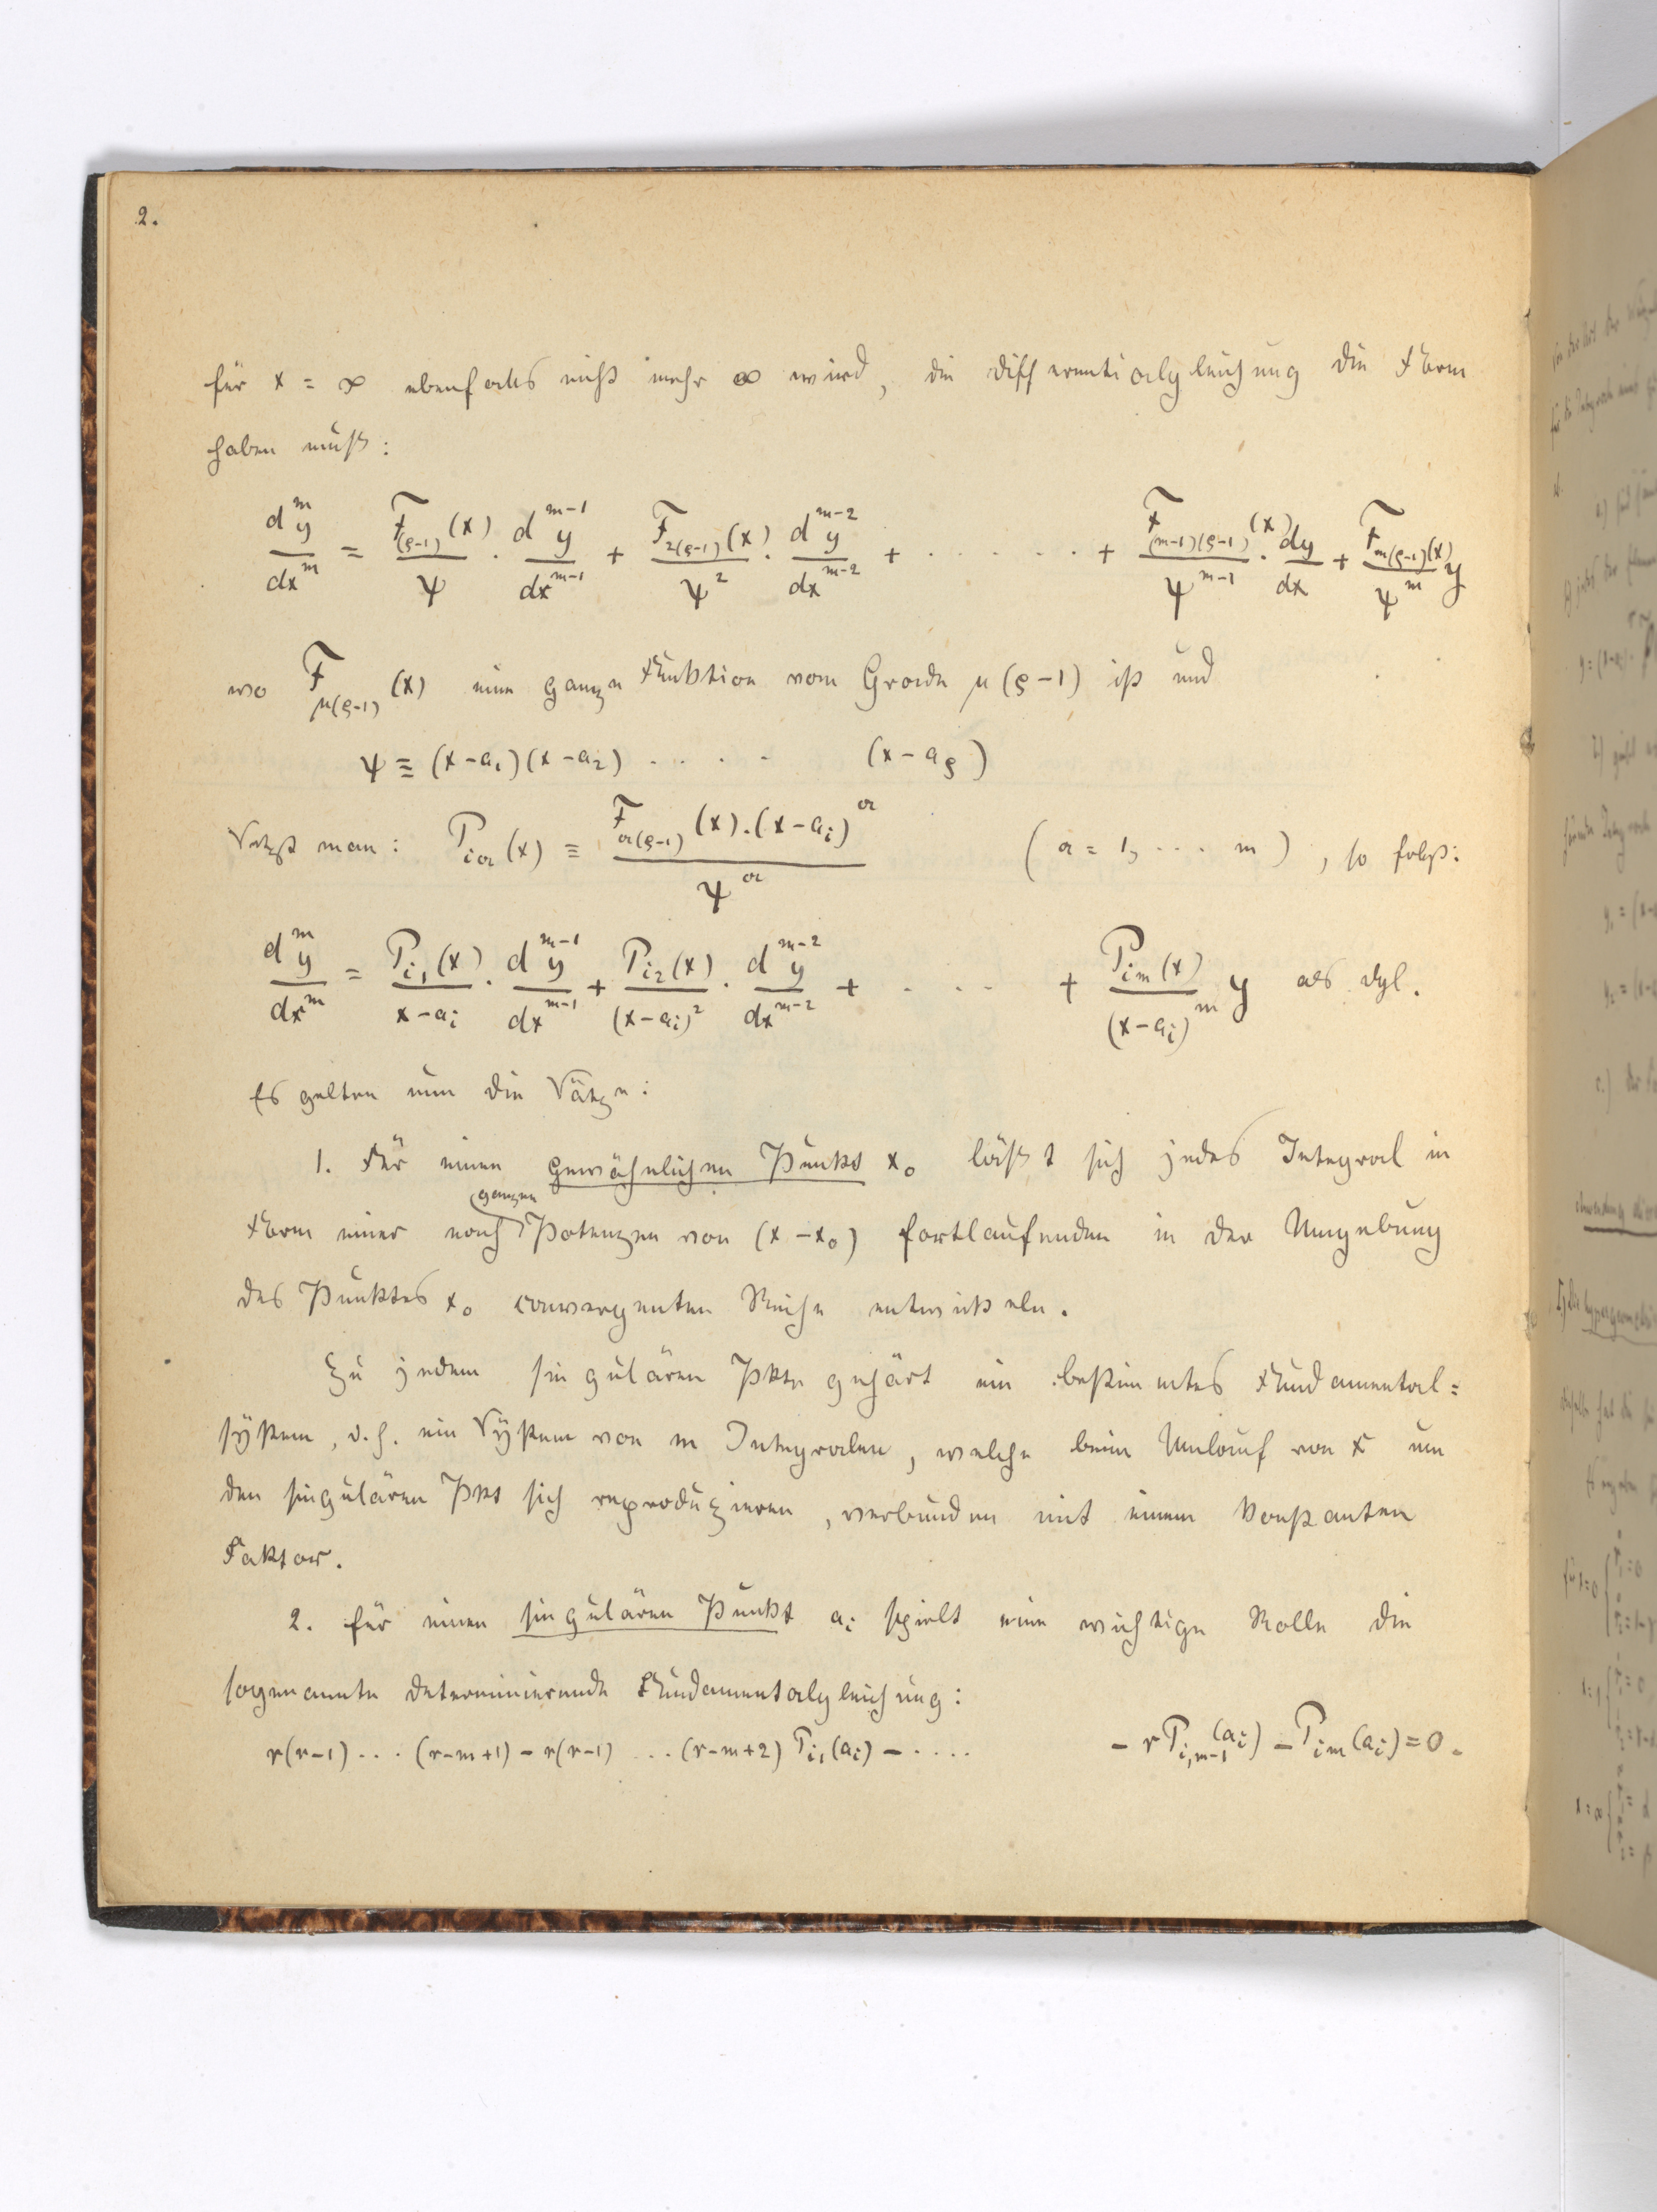 2.
für x = ∞ ebenfalls nicht mehr ∞ wird, die Differentialgleichung die Form
haben muß:
d^m y / dx^m = F_(ρ-1) (x) / ψ · d^{m-1} y / dx^{m-1} + F_{2(ρ-1)} (x) / ψ^2 · d^{m-2} y / dx^{m-2} + · · · · · · + F_{(m-1)(ρ-1)} (x) / ψ^{m-1} · dy / dx + F_{m(ρ-1)} (x) / ψ^m y
wo F_{μ(ρ-1)} (x) eine ganze Funktion vom Grade μ(ρ-1) ist und
ψ ≡ (x-a_1)(x-a_2) · · · · (x-a_ρ)
Setzt man: P_{ia} (x) ≡ F_{a(ρ-1)} (x) . (x-a_i)^a / ψ^a (a = 1, · · · m), so folgt:
d^m y / dx^m = P_{i1} (x) / x-a_i · d^{m-1} y / dx^{m-1} + P_{i2} (x) / (x-a_i)^2 · d^{m-2} y / dx^{m-2} + · · · + P_{im} (x) / (x-a_i)^m y als Dgl.
Es gelten nun die Sätze:
1. Für einen gewöhnlichen Punkt x_0 läßt sich jedes Integral in
Form einer nach ganzen Potenzen von (x-x_0) fortlaufenden in der Umgebung
des Punktes x_0 convergenten Reihe entwickeln.
Zu jedem singulären Pkte gehört ein bestimmtes Fundamental=
system, d.h. ein System von m Integralen, welche beim Umlauf von x um
den singulären Pkt sich reproduzieren, verbunden mit einem konstanten
Faktor.
2. Für einen singulären Punkt a_i spielt eine wichtige Rolle die
sogenannte determinierende Fundamentalgleichung:
r(r-1) · · · (r-m+1) - r(r-1) · · · (r-m+2) P_{i1} (a_i) - · · · · - r P_{i,m-1} (a_i) - P_{im} (a_i) = 0.